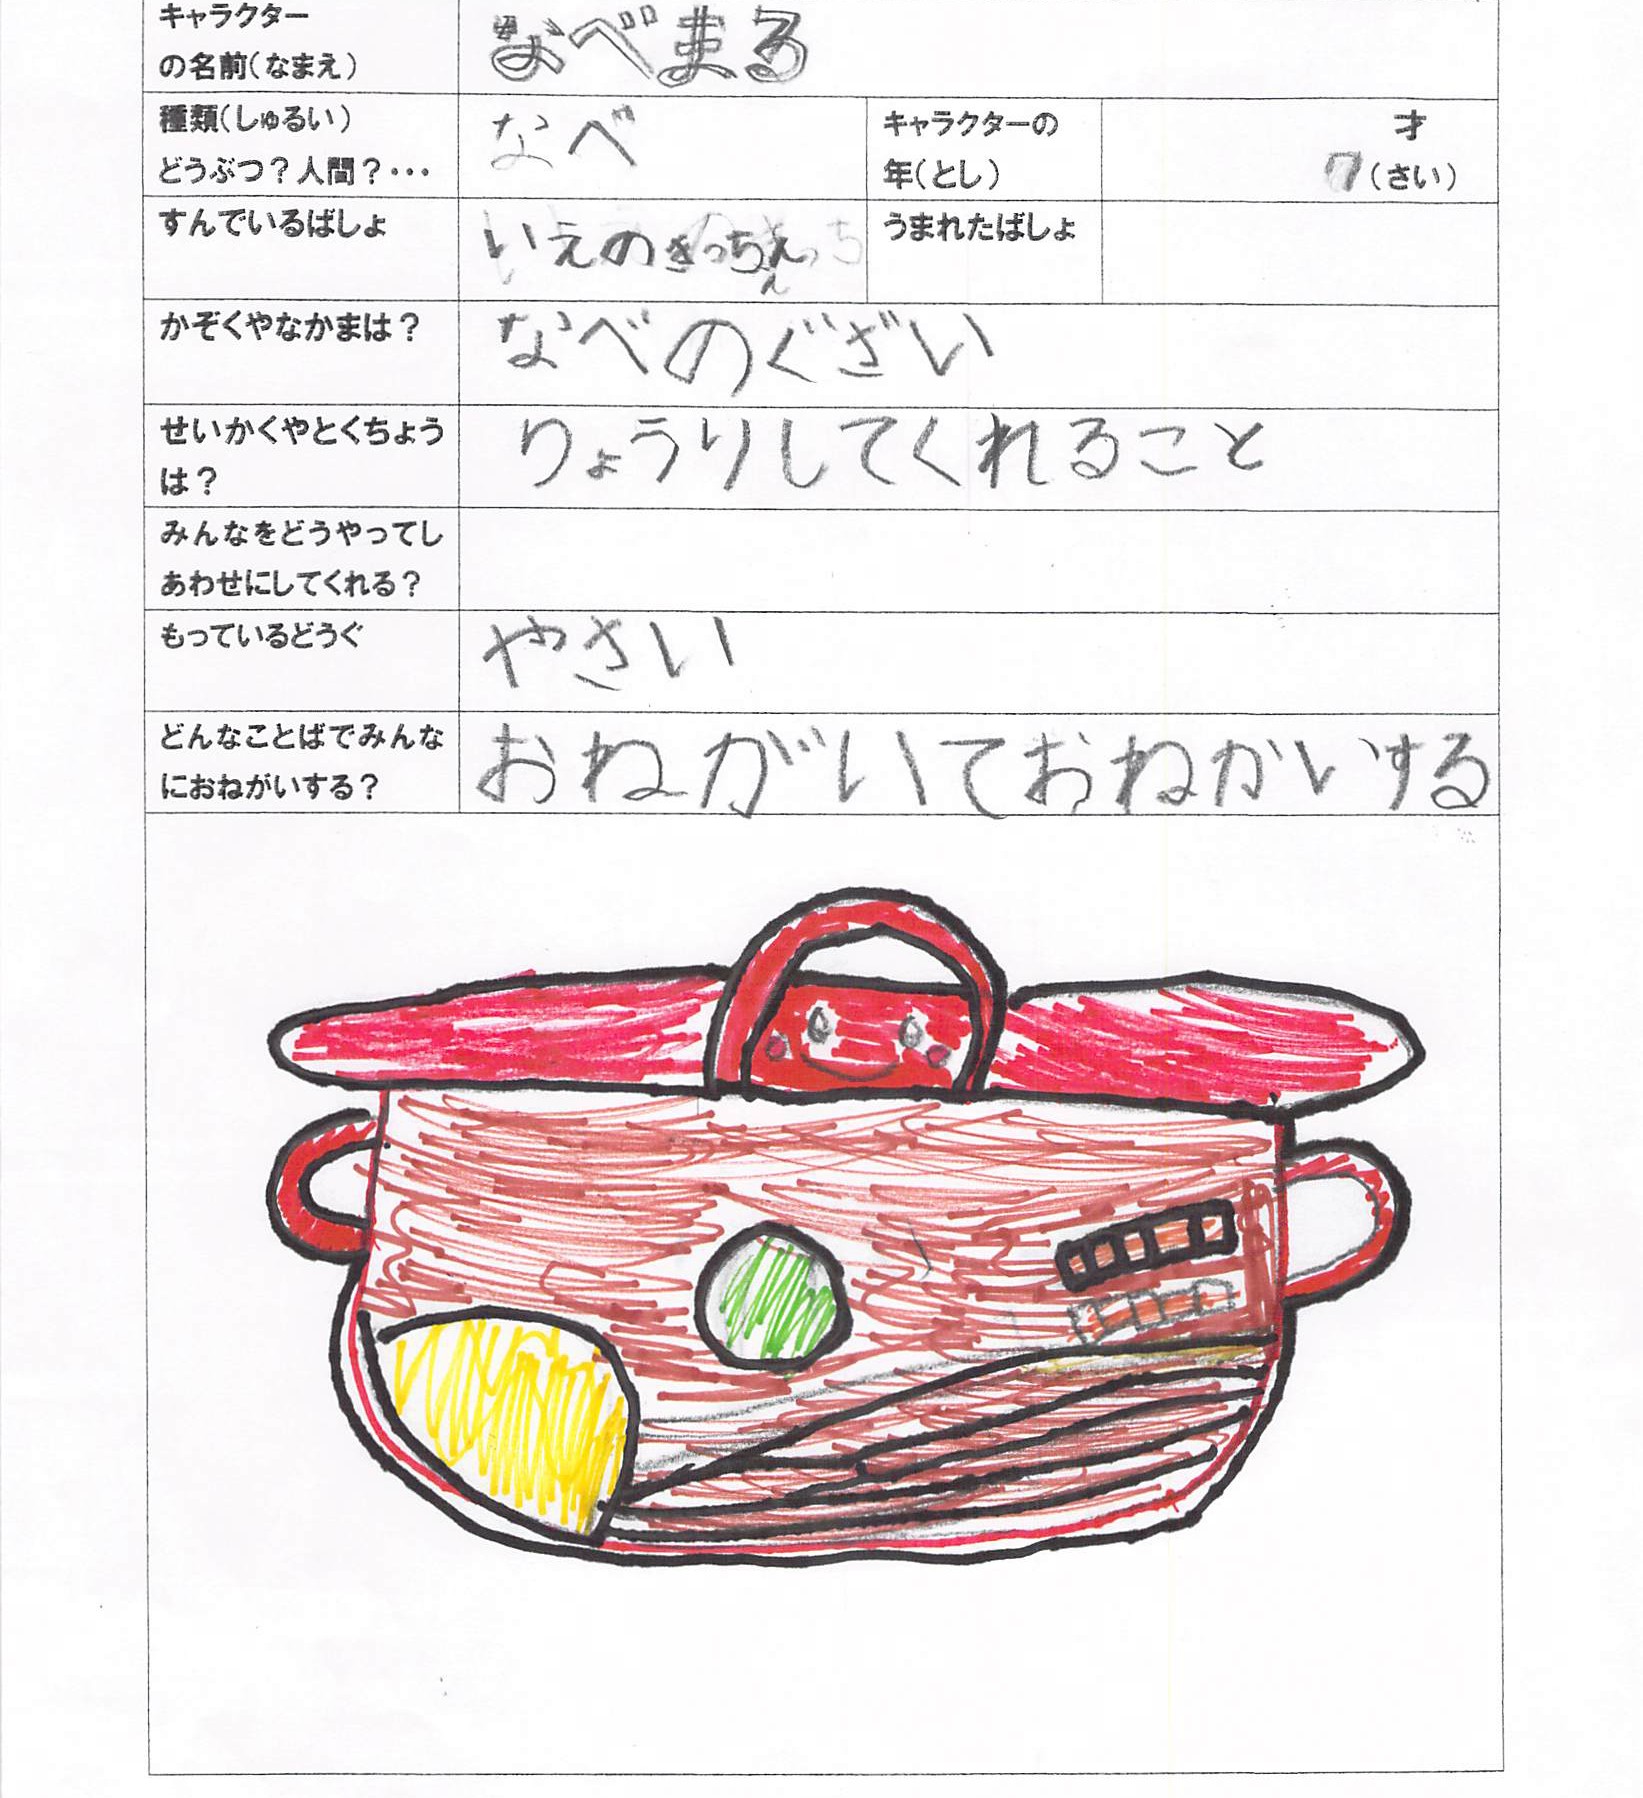 キャラクター
の名前(なまえ)
なべまる
種類(しゅるい)
どうぶつ?人間?・・・
なべ
キャラクターの
年(とし)
才
7(さい)
すんでいるばしょ
いえのきっちえん
うまれたばしょ
かぞくやなかまは?
なべのぐざい
せいかくやとくちょう
は?
りょうりしてくれること
みんなをどうやってし
あわせにしてくれる?
もっているどうぐ
やさい
どんなことばでみんな
におねがいする?
おねがいておねかいする